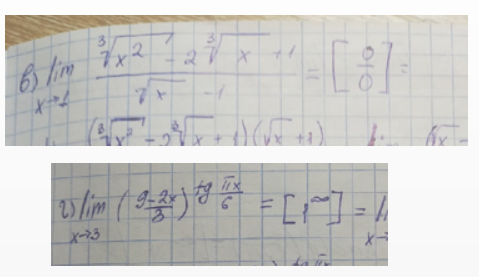 в) lim x→1 (∛x² - 2∛x + 1)/(√x - 1) = [0/0] =
(∛x² - 2∛x + 1)(√x + 1)
г) lim x→3 ((9-2x)/3)^(tg πx/6) = [1^∞] = li
x→